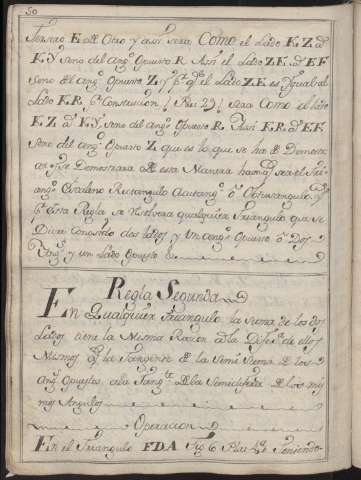 50
Tercero E. del Otro y assi sera COMO el Lado E.Z. à
E.Y. Seno del angº Opuesto R. Assi el Lado Z.E. à E.F.
Seno del angº Opuesto Z. y pr qe el Lado Z.E. es Ygual al
Lado E.R. pr Construccion sera COMO el lado
E.Z. à E.Y. seno del angº Opuesto R. Assi E.R. à E.F.
Seno del angº Opuesto Z que es lo que se ha de Demostrar
Demostrara de esta Manera
angº Escaleno Rectangulo Acutangº ô Obtusangulo y
pr esta Regla se resolvera qualquiera Triangulo que se
Diera Conosido dos Lados y Un angº Opuesto ô Dos
Angs y un Lado Opuesto
Regla Segunda
En Qualquier triangulo la Suma de los dos
Lados tiene la Misma Razon à la Difera de ellos
Mismos qe la Tangente de la Semi Suma de Los
Angs Opuestos, a la Tangte de la Semidifera de Los mis
mos Angulos
Operacion
En el Triangulo F.D.A. Fig 6 Teniendo-